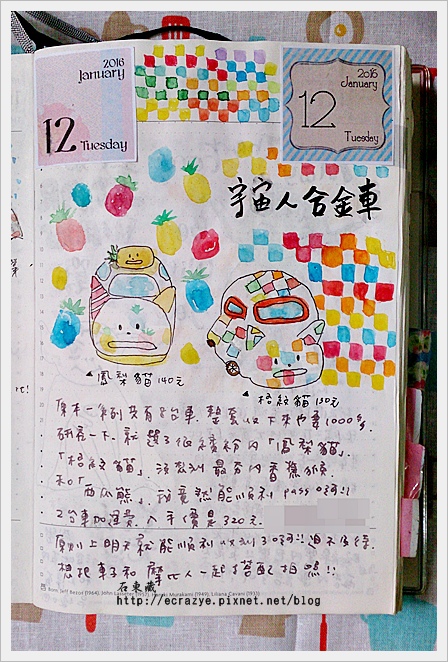 2016
January
12
Tuesday
2016
January
12
Tuesday
宇宙人合金車
鳳梨貓140元
格紋貓150元
原本一系列共有8台車,整套收下來也要1000多,
研究一下,就選了很繽紛的「鳳梨貓」
「格紋貓」沒收到最夯的香蕉猴
和「西瓜熊」,我竟然能順利pass 啊!!
2台車加運費,入手價是320元.
原則上明天就能順利收到了啊!!迫不及待,
想把車子和摩比人一起搭配拍照!!
在東藏
http://ecrazye.pixnet.net/blog
Born: Jeff Bezos (1964), John Lasseter (1957), Haruki Murakami (1949), Liliana Cavani (1933)